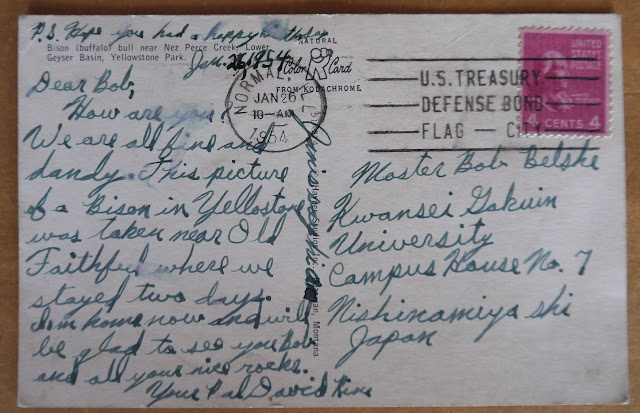 P.S. Hope you had a happy birthday
Bison (buffalo) bull near Nez Perce Creek, Lower
Geyser Basin, Yellowstone Park.
Jan. 26, 1954
Dear Bob,
How are you?
We are all fine and
dandy. This picture
of a Bison in Yellostone
was taken near Old
Faithful where we
stayed two days.
I'm home now and will
be glad to see you Bob
and all your nice rocks.
Your Pal David King
NATURAL
Color Card
FROM KODACHROME
NORMAL, ILL.
JAN 26
10-AM
1954
U.S. TREASURY
DEFENSE BOND
FLAG — CITY
UNITED
STATES
POSTAGE
4 CENTS 4
Master Bob Belske
Kwansei Gakuin
University
Campus House No. 7
Nishinomiya shi
Japan
Studios, Inc.
Montana